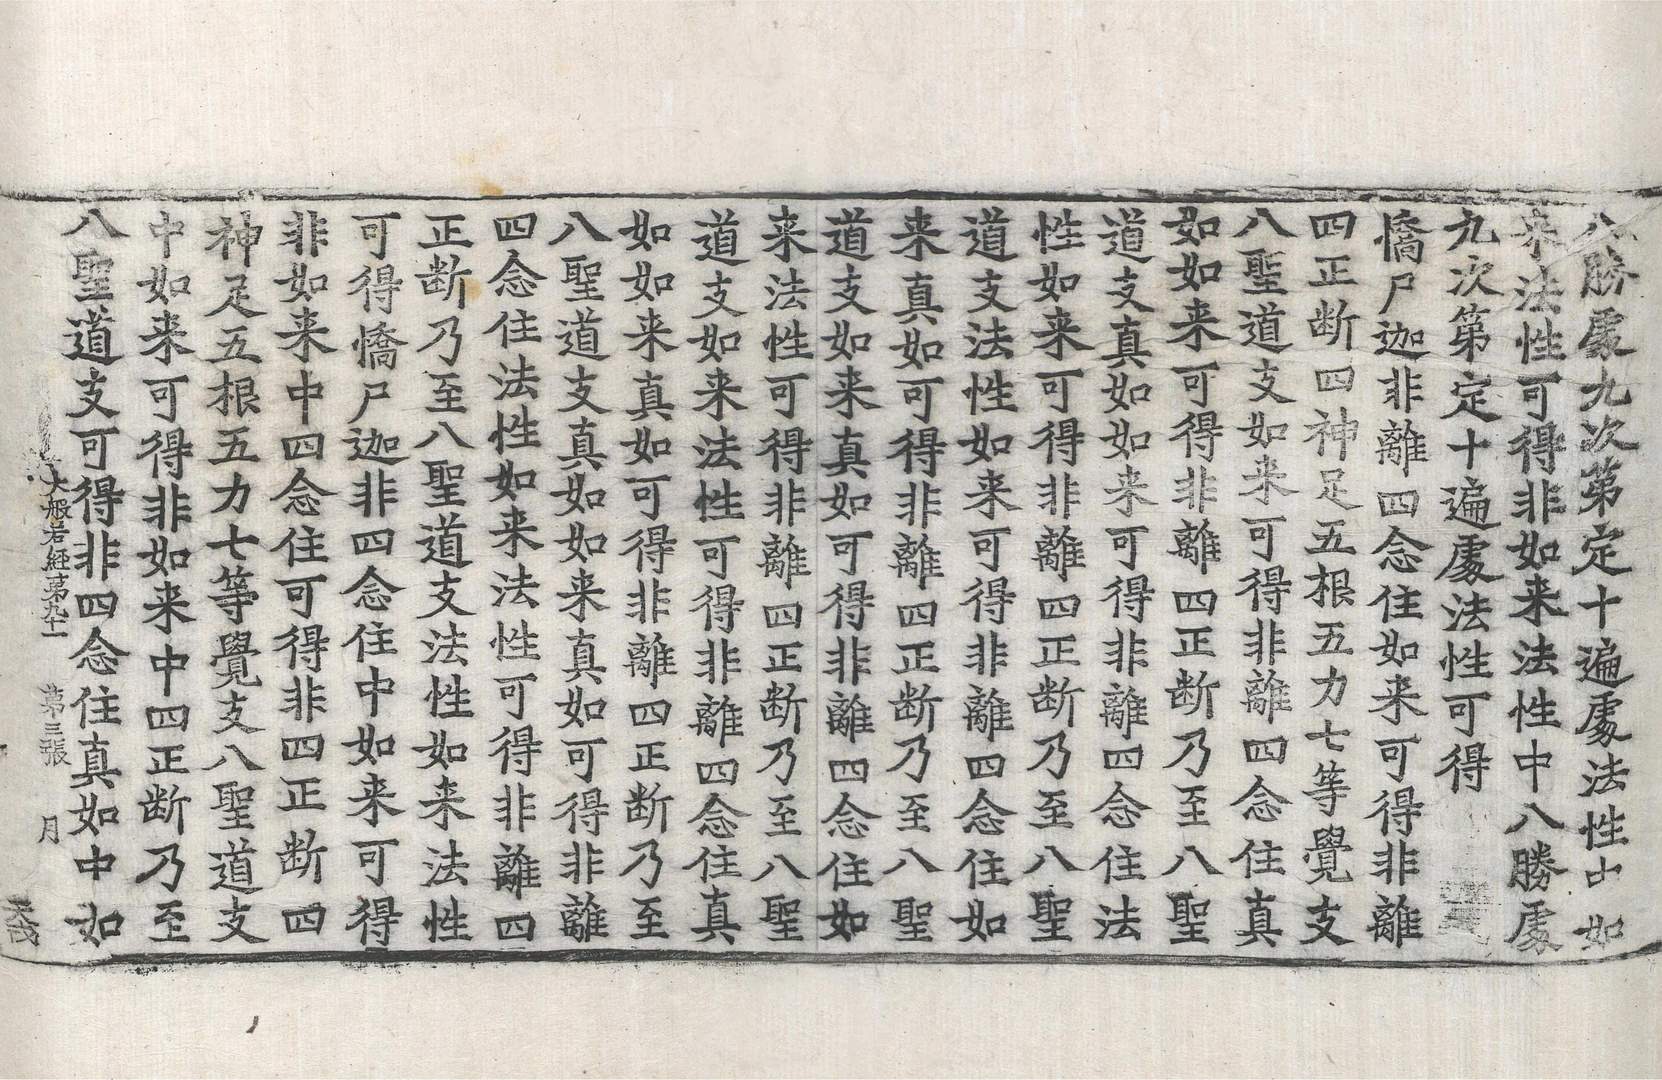 八勝處九次第定十遍處法性中如
来法性可得非如来法性中八勝處
九次第定十遍處法性可得
憍尸迦非離四念住如来可得非離
四正断四神足五根五力七等覺支
八聖道支如来可得非離四念住真
如如来可得非離四正断乃至八聖
道支真如如来可得非離四念住法
性如来可得非離四正断乃至八聖
道支法性如来可得非離四念住如
来真如可得非離四正断乃至八聖
道支如来真如可得非離四念住如
来法性可得非離四正断乃至八聖
道支如来法性可得非離四念住真
如如来真如可得非離四正断乃至
八聖道支真如如来真如可得非離
四念住法性如来法性可得非離四
正断乃至八聖道支法性如来法性
可得憍尸迦非四念住中如来可得
非如来中四念住可得非四正断四
神足五根五力七等覺支八聖道支
中如来可得非如来中四正断乃至
八聖道支可得非四念住真如中如
大般若經第九十一 第三張 月